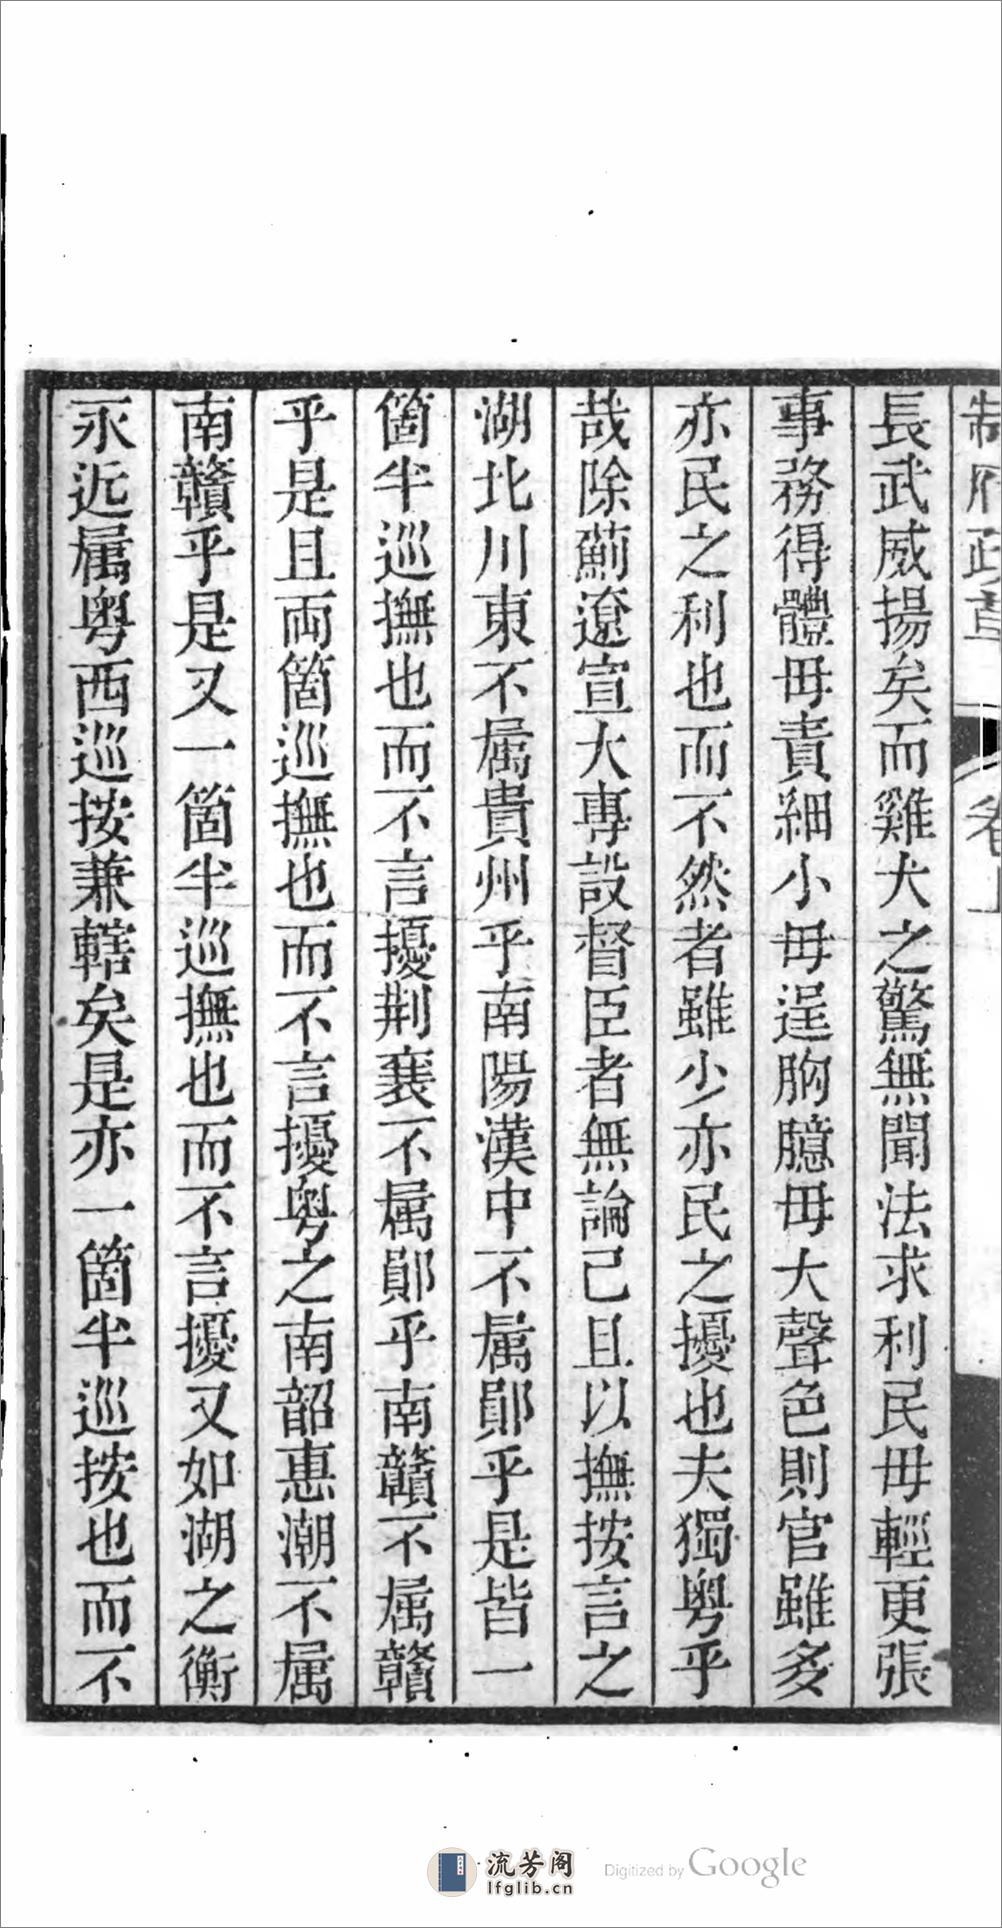 長武威揚矣而雞犬之驚無聞法求利民毋輕更張
事務得體毋責細小毋逞胸臆毋大聲色則官雖多
亦民之利也而不然者雖少亦民之擾也夫獨粤乎
哉除薊遼宣大專設督臣者無論己且以撫按言之
湖北川東不属貴州乎南陽漢中不属鄖乎是皆一
箇半巡撫也而不言擾荆襄不属鄖乎南贛不属贛
乎是且両箇巡撫也而不言擾粤之南韶惠潮不属
南贛乎是又一箇半巡撫也而不言擾又如湖之衡
永近属粤西巡按兼轄矣是亦一箇半巡按也而不
流芳阁
lfglib.cn
Digitized by Google